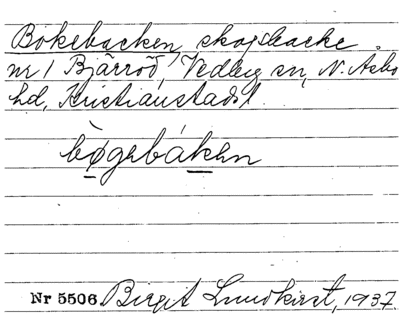 Bokebacken, skogsbacke
nr 1 Bjärröd, Vedby sn, N. Åsbo
hd, Kristianstads l.
bø̀gebáken
Nr 5506 Birgit Lundkvist, 1937.